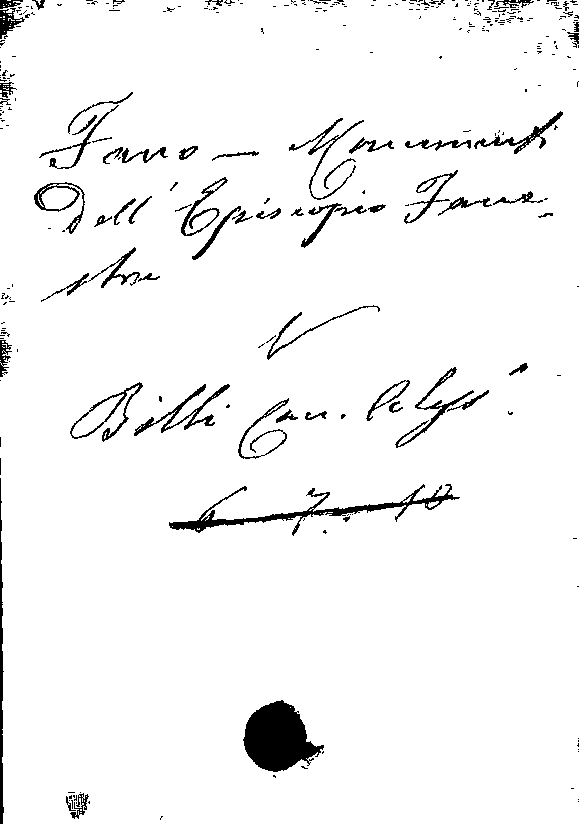 Fano — Monumenti
Dell' Episcopio Fane-
stre
V
Billi Can. Celso
6 7. 10